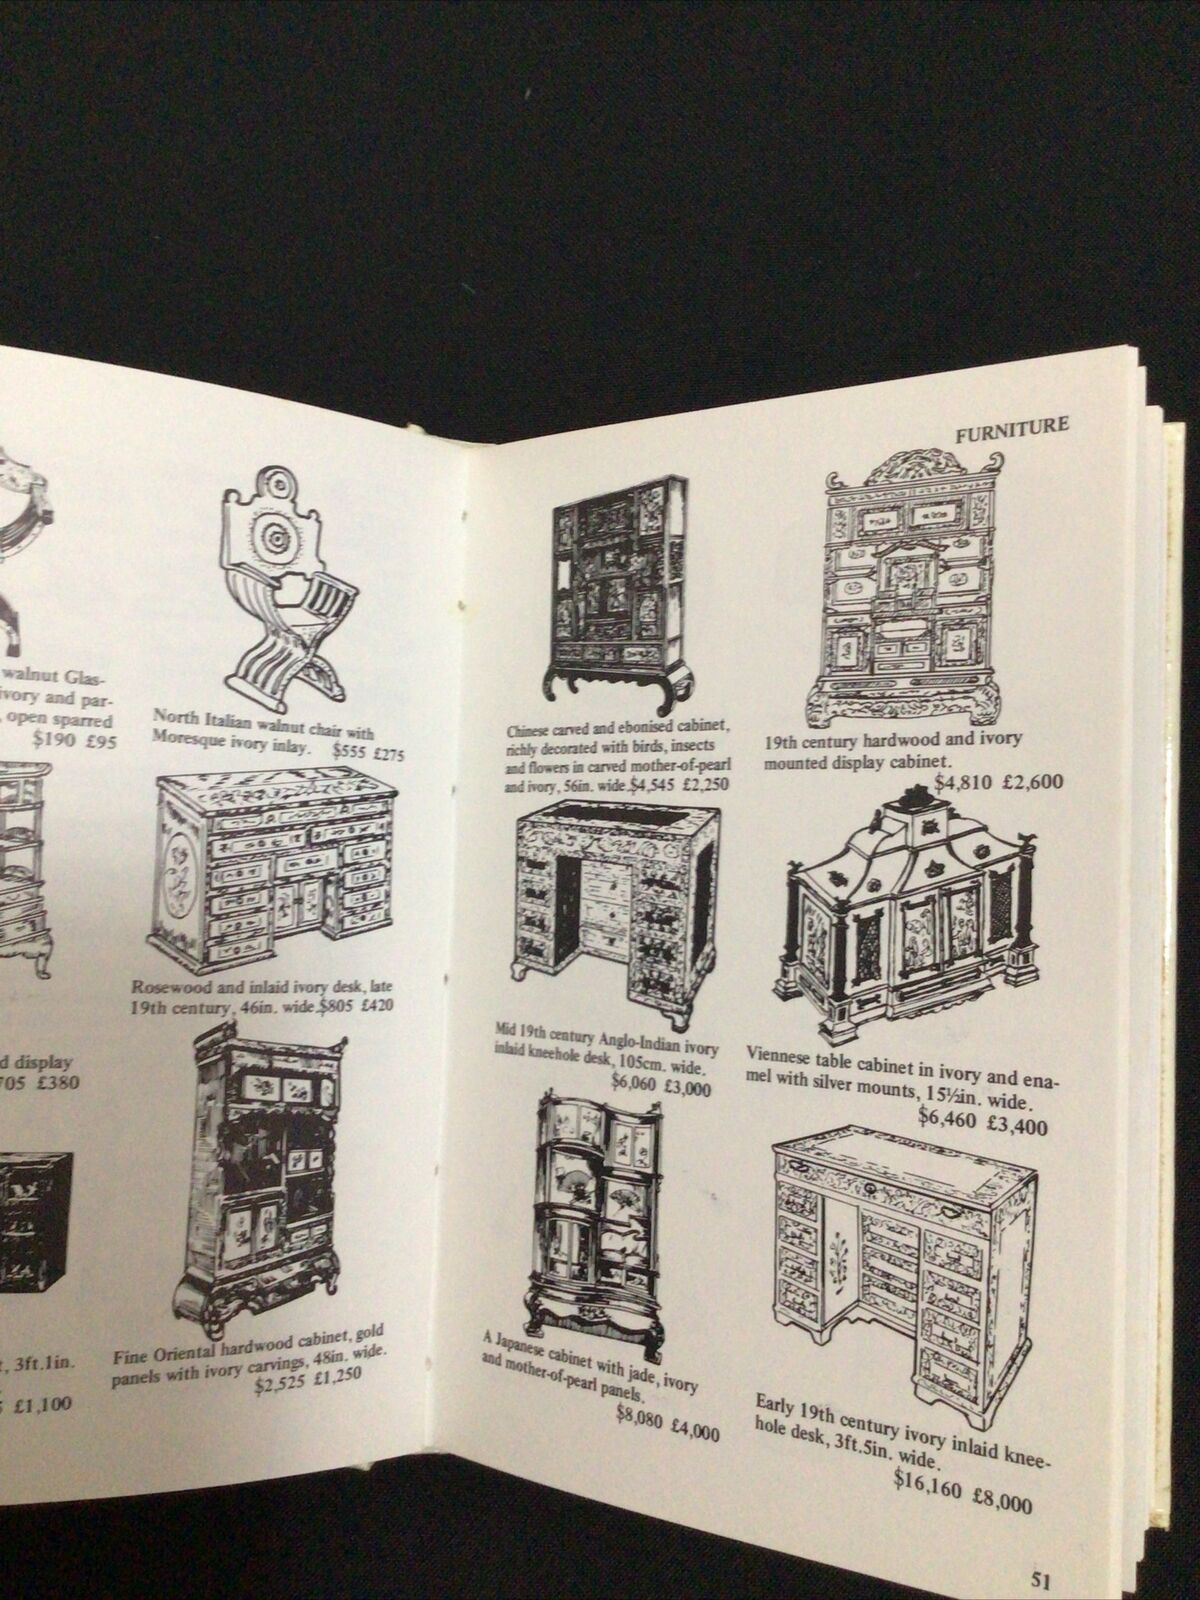 walnut Glas-
ivory and par-
, open sparred
$190 £95
North Italian walnut chair with
Moresque ivory inlay. $555 £275
Rosewood and inlaid ivory desk, late
19th century, 46in. wide.$805 £420
d display
705 £380
Fine Oriental hardwood cabinet, gold
panels with ivory carvings, 48in. wide.
$2,525 £1,250
, 3ft.1in.
£1,100
FURNITURE
Chinese carved and ebonised cabinet,
richly decorated with birds, insects
and flowers in carved mother-of-pearl
and ivory, 56in. wide.$4,545 £2,250
19th century hardwood and ivory
mounted display cabinet.
$4,810 £2,600
Mid 19th century Anglo-Indian ivory
inlaid kneehole desk, 105cm. wide.
$6,060 £3,000
Viennese table cabinet in ivory and ena-
mel with silver mounts, 15½in. wide.
$6,460 £3,400
A Japanese cabinet with jade, ivory
and mother-of-pearl panels.
$8,080 £4,000
Early 19th century ivory inlaid knee-
hole desk, 3ft.5in. wide.
$16,160 £8,000
51